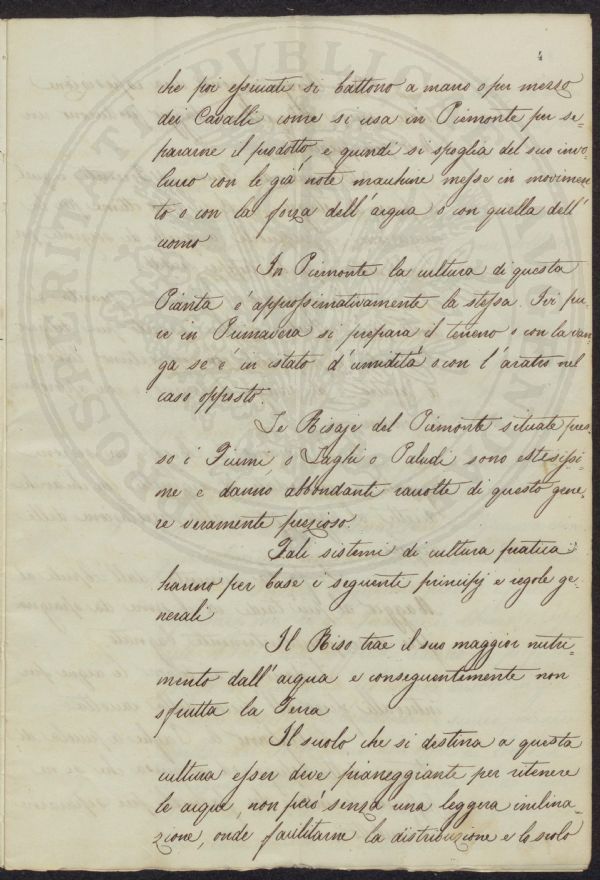 4
che poi essiccati si battono a mano o per mezzo
dei Cavalli come si usa in Piemonte per se=
pararne il prodotto, e quindi si spoglia del suo invo=
lucro con le già note macchine messe in movimen
to o con la forza dell'acqua o con quella dell'
uomo
In Piemonte la cultura di questa
Pianta é approssimativamente la stessa. Ivi pu=
re in Primavera si prepara il terreno o con la van=
ga se é in istato d'umidità o con l'aratro nel
caso opposto.
Le Risaje del Piemonte situate pres=
so i Fiumi, o Laghi o Paludi sono estesissi=
me e danno abbondanti raccolte di questo gene=
re veramente prezioso.
Tali sistemi di cultura pratica
hanno per base i seguenti principj e regole ge=
nerali
Il Riso trae il suo maggior nutri=
mento dall'acqua e conseguentemente non
sfrutta la Terra
Il suolo che si destina a questa
cultura esser deve pianeggiante per ritenere
le acque, non però senza una leggera inclina=
zione, onde facilitarne la distribuzione e lo scolo